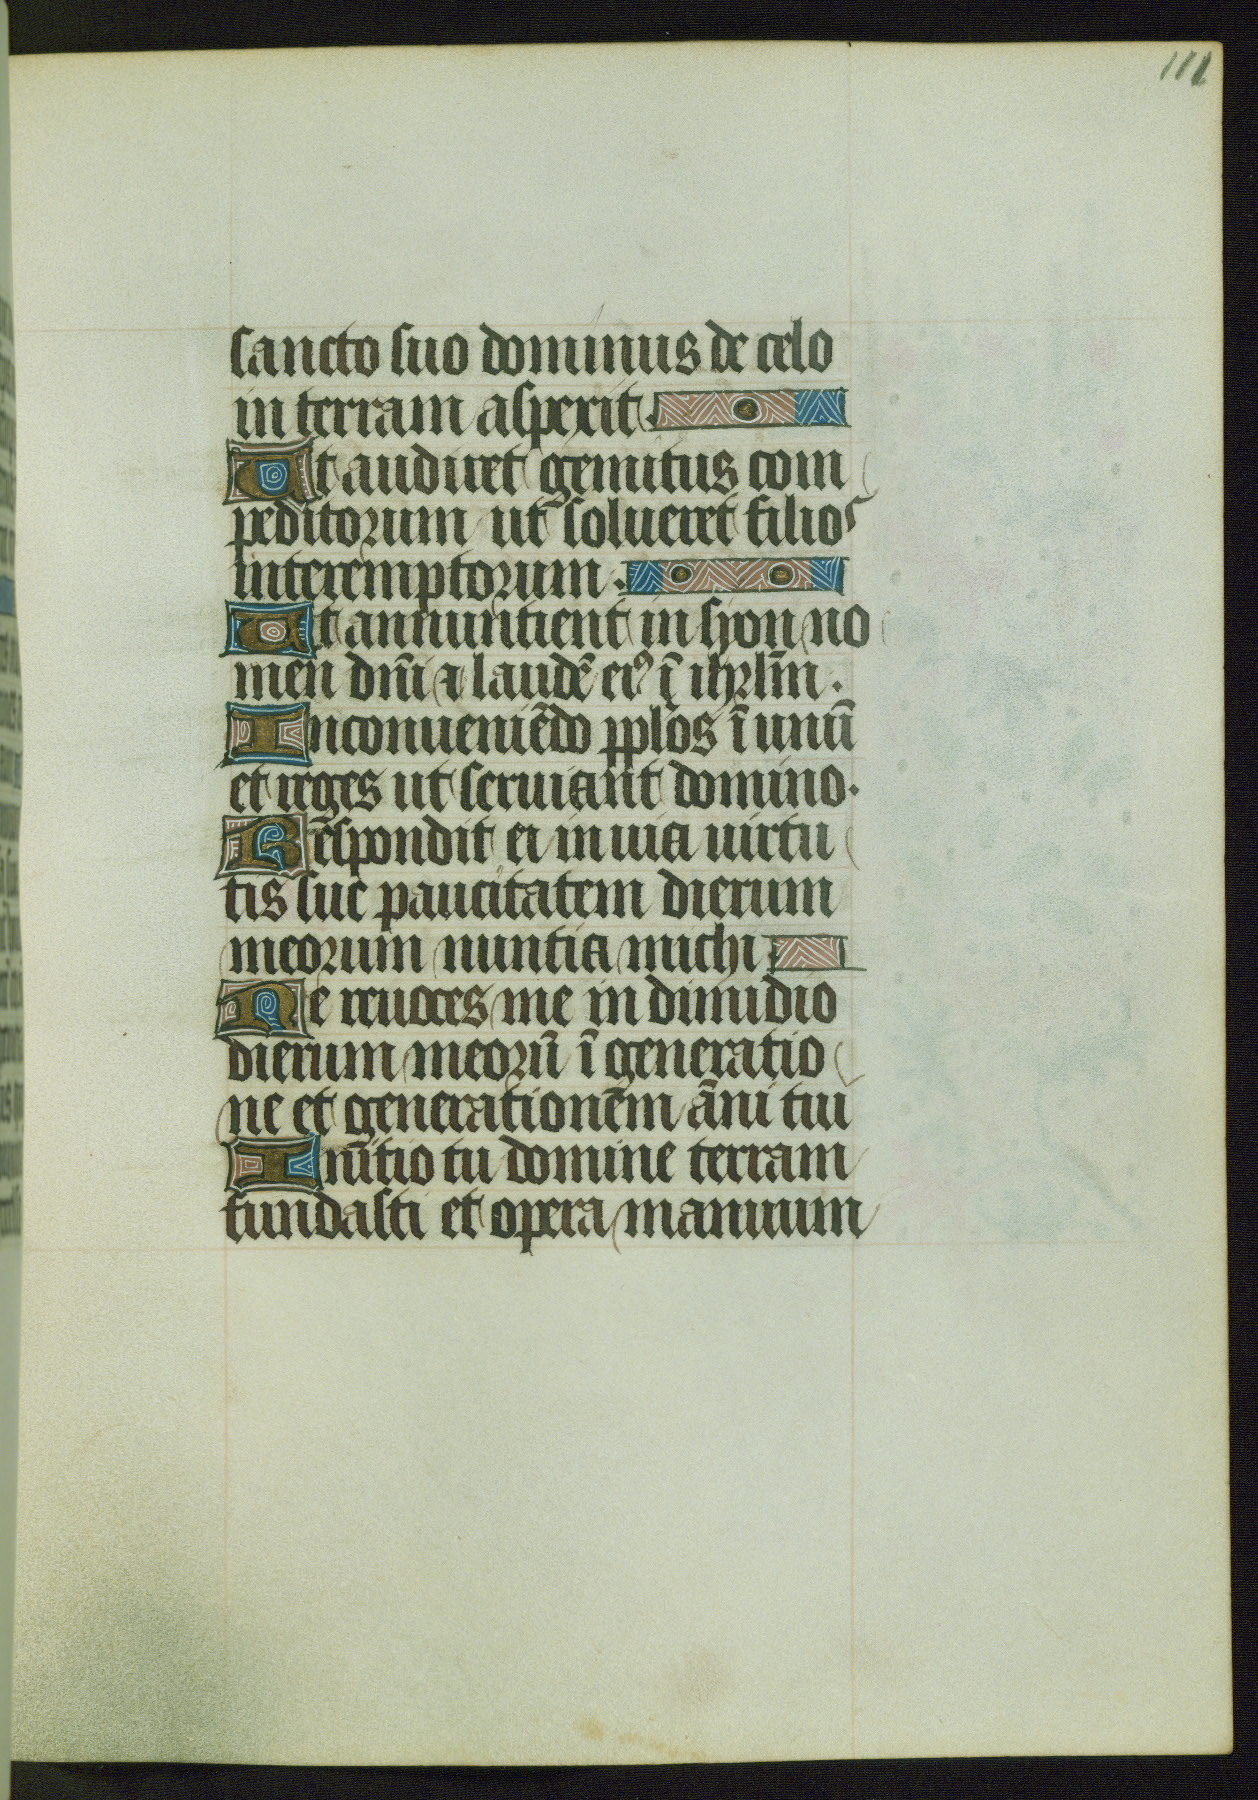 111
sancto suo dominus de celo
in terram asperit.
Ut audiret gemitus com
peditorum ut solueret filios
interemptorum.
Ut annuntient in syon no
men dn̄i ⁊ laudē eiꝰ ī ihrl̄m.
In conueniēdo pplos ī unū
et reges ut seruiant domino.
Rēspondit ei in uia uirtu
tis sue paucitatem dierum
meorum nuntia michi
Ne reuoces me in dimidio
dierum meorū ī generatio
ne et generationēm āni tui
Inītio tu domine terram
fundasti et opera manuum